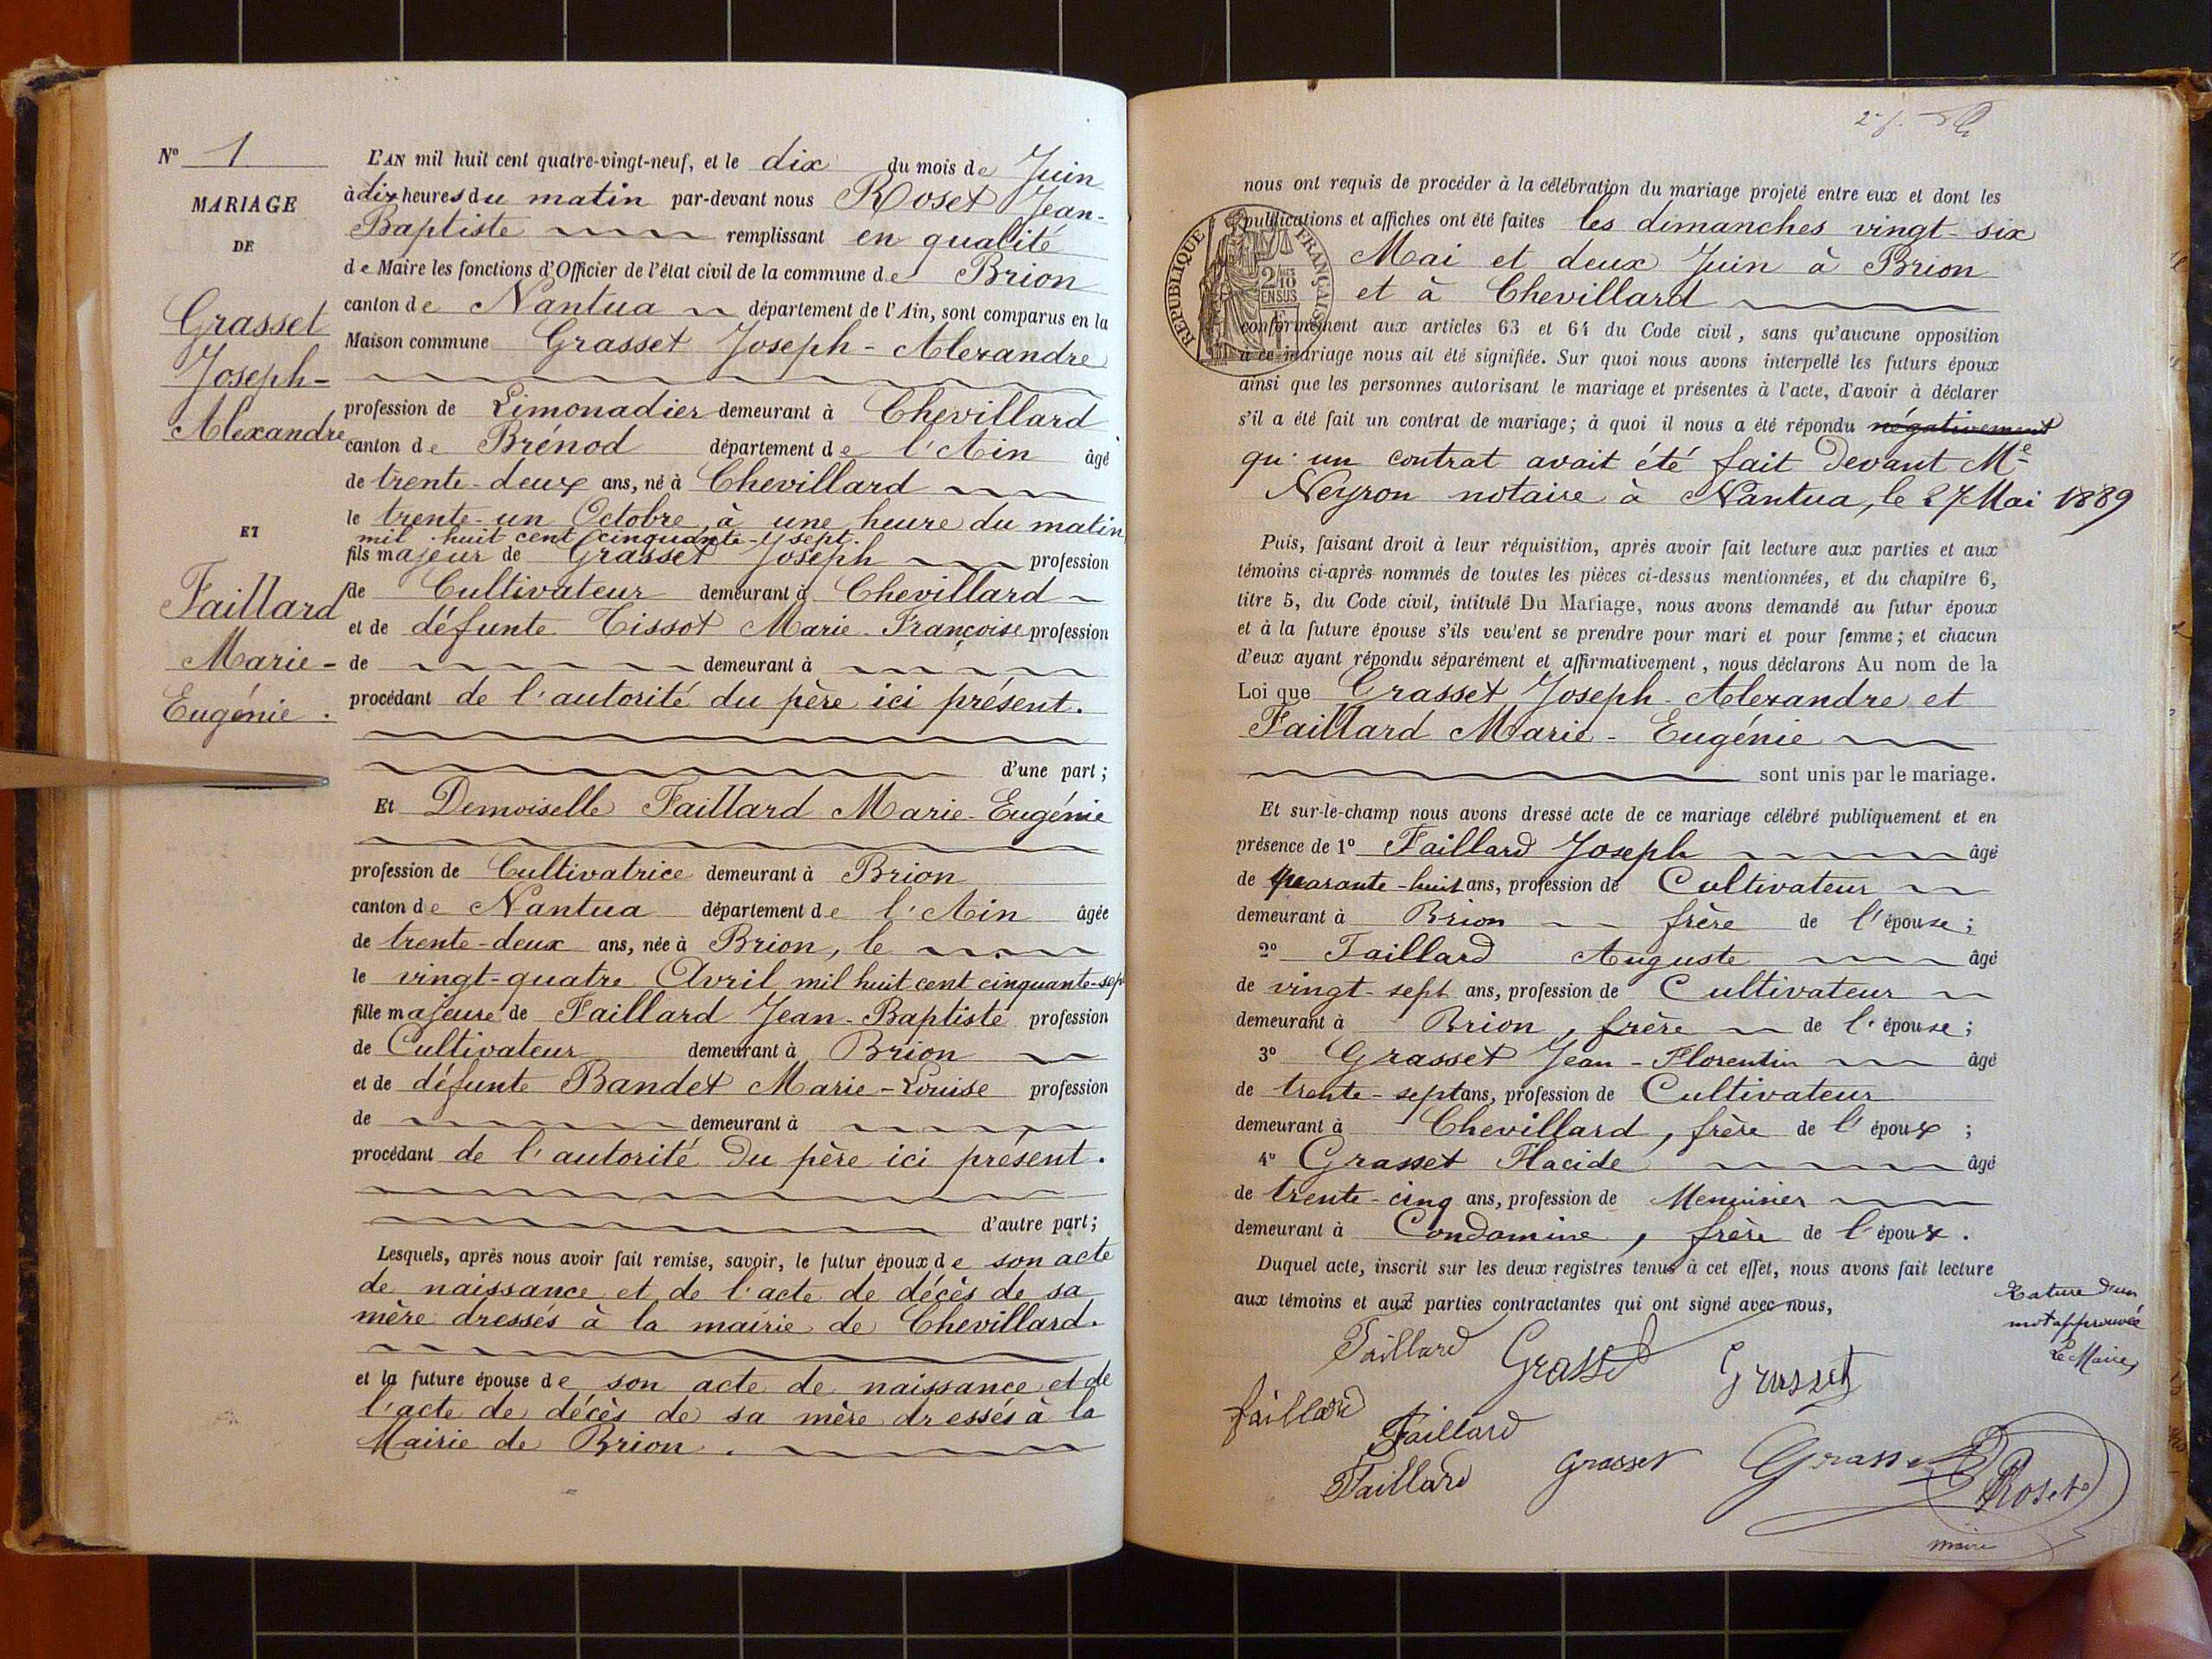 N° 1
MARIAGE
DE
Grasset
Joseph-
Alexandre
ET
Faillard
Marie-
Eugénie.
L'AN mil huit cent quatre-vingt-neuf, et le dix du mois de Juin
à dix heures du matin par-devant nous Roset Jean-
Baptiste remplissant en qualité
de Maire les fonctions d'Officier de l'état civil de la commune de Brion
canton de Nantua département de l'Ain, sont comparus en la
Maison commune Grasset Joseph-Alexandre
profession de Limonadier demeurant à Chevillard
canton de Brénod département de l'Ain âgé
de trente-deux ans, né à Chevillard
le trente-un Octobre, à une heure du matin
mil huit cent cinquante-sept.
fils majeur de Grasset Joseph profession
de Cultivateur demeurant à Chevillard
et de défunte Tissot Marie-Françoise profession
de demeurant à
procédant de l'autorité du père ici présent.
d'une part;
Et Demoiselle Faillard Marie-Eugénie
profession de Cultivatrice demeurant à Brion
canton de Nantua département de l'Ain âgée
de trente-deux ans, née à Brion, le
le vingt-quatre Avril mil huit cent cinquante-sept
fille majeure de Faillard Jean-Baptiste profession
de Cultivateur demeurant à Brion
et de défunte Bandet Marie-Louise profession
de demeurant à
procédant de l'autorité du père ici présent.
d'autre part;
Lesquels, après nous avoir fait remise, savoir, le futur époux de son acte
de naissance et de l'acte de décès de sa
mère dressés à la mairie de Chevillard.
et la future épouse de son acte de naissance et de
l'acte de décès de sa mère dressés à la
Mairie de Brion.
nous ont requis de procéder à la célébration du mariage projeté entre eux et dont les
publications et affiches ont été faites les dimanches vingt-six
Mai et deux Juin à Brion
et à Chevillard
RÉPUBLIQUE FRANÇAISE
2/10 EN SUS
conformément aux articles 63 et 64 du Code civil, sans qu'aucune opposition
à ce mariage nous ait été signifiée. Sur quoi nous avons interpellé les futurs époux
ainsi que les personnes autorisant le mariage et présentes à l'acte, d'avoir à déclarer
s'il a été fait un contrat de mariage; à quoi il nous a été répondu négativement
qu'un contrat avait été fait devant Me
Neyron notaire à Nantua, le 27 Mai 1889
Puis, faisant droit à leur réquisition, après avoir fait lecture aux parties et aux
témoins ci-après nommés de toutes les pièces ci-dessus mentionnées, et du chapitre 6,
titre 5, du Code civil, intitulé Du Mariage, nous avons demandé au futur époux
et à la future épouse s'ils veulent se prendre pour mari et pour femme; et chacun
d'eux ayant répondu séparément et affirmativement, nous déclarons Au nom de la
Loi que Grasset Joseph-Alexandre et
Faillard Marie-Eugénie
sont unis par le mariage.
Et sur-le-champ nous avons dressé acte de ce mariage célébré publiquement et en
présence de 1° Faillard Joseph âgé
de quarante-huit ans, profession de Cultivateur
demeurant à Brion frère de l'épouse;
2° Faillard Auguste âgé
de vingt-sept ans, profession de Cultivateur
demeurant à Brion, frère de l'épouse;
3° Grasset Jean-Florentin âgé
de trente-sept ans, profession de Cultivateur
demeurant à Chevillard, frère de l'époux;
4° Grasset Placide âgé
de trente-cinq ans, profession de Menuisier
demeurant à Condamine, frère de l'époux.
Duquel acte, inscrit sur les deux registres tenus à cet effet, nous avons fait lecture
aux témoins et aux parties contractantes qui ont signé avec nous,
Rature d'un
mot approuvée
Le Maire,
Faillard Grasset Grasset
faillard
Faillard
Faillard Grasset Grasset
Roset
maire